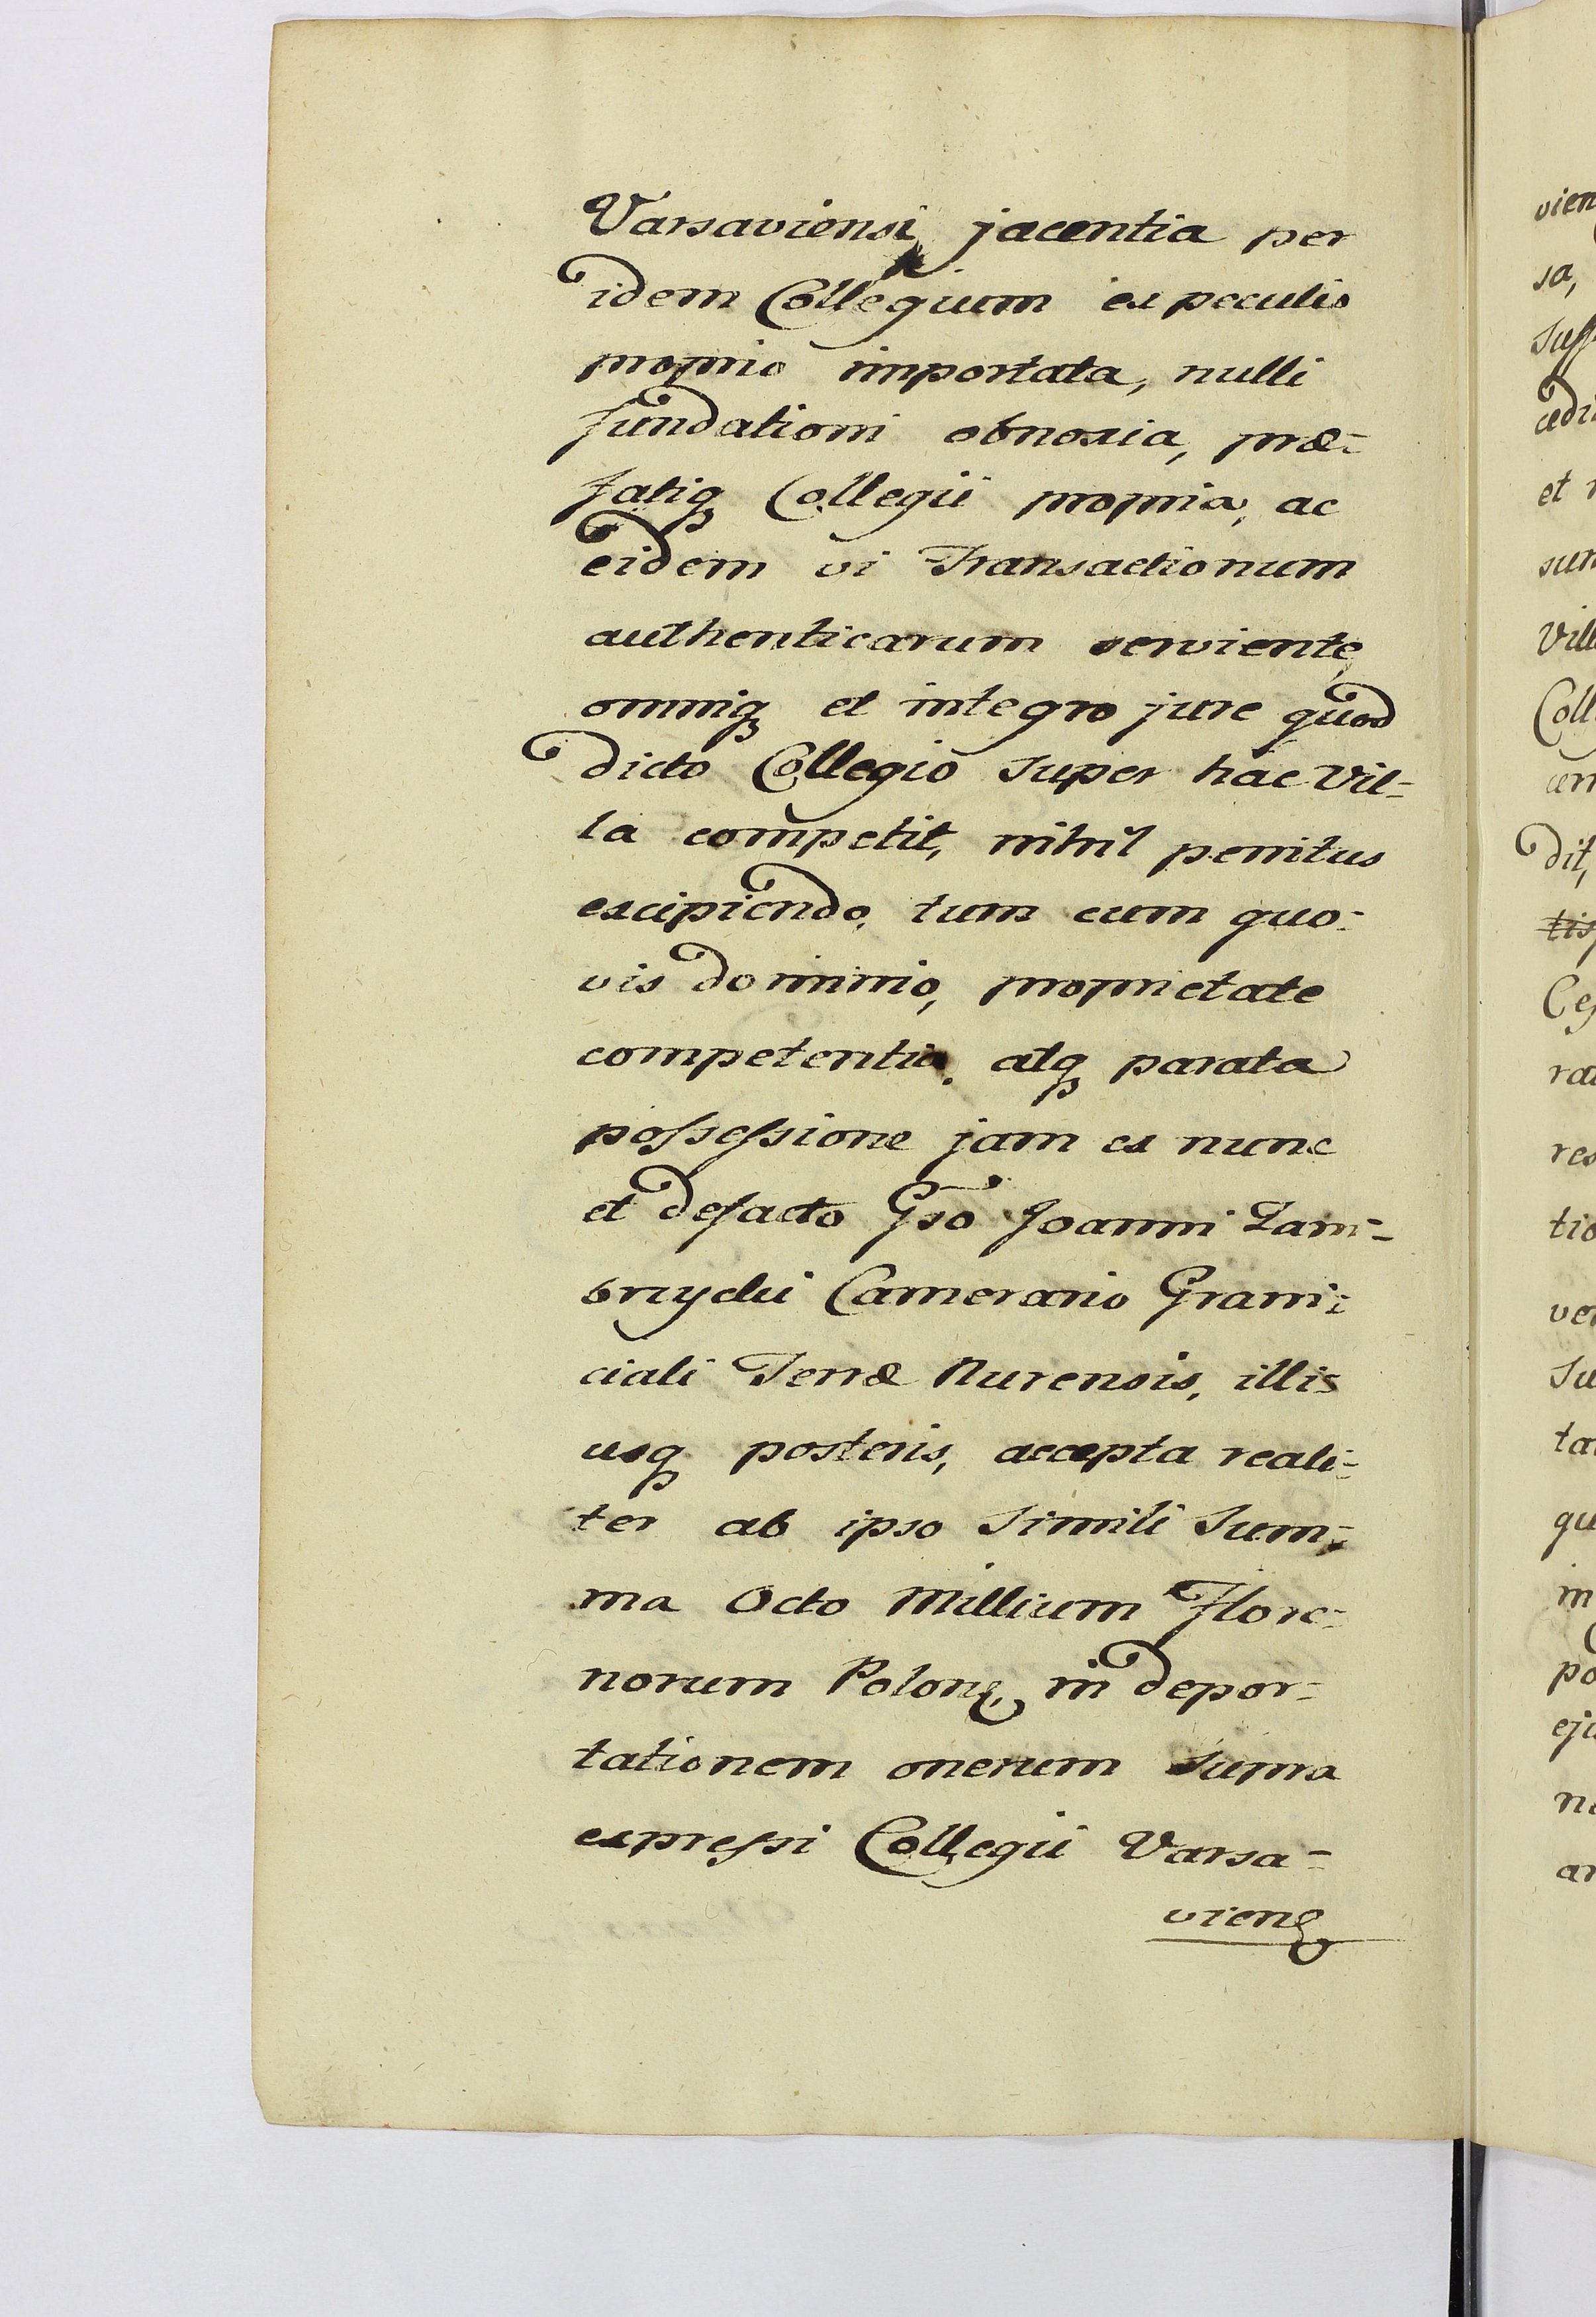 Varsaviensi jacentia per
idem Collegium ex peculio
proprio importata, nulli
fundationi obnoxia, præ-
fatiq Collegii propria, ac
eidem vi Transactionum
authenticarum serviente,
omniq et integro jure quod
dicto Collegio super hac Vil-
la competit, nihil penitus
excipiendo, tum cum quo-
vis dominio, proprietate
competentia, atq parata
possessione jam ex nunc
et defacto Gso Joanni Zam-
brzycki Camerario Grani-
ciali Terræ Nurensis, illis
usq posteris, accepta reali-
ter ab ipso simili Sum-
ma Octo Millium Flore-
norum Polong, in depor-
tationem onerum supra
expressi Collegii Varsa-
vieng
vien
sa,
et
sum
Vill
Coll
dit,